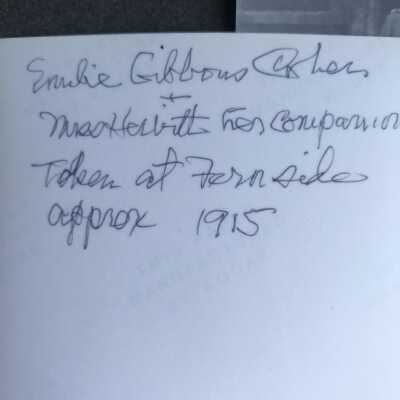 Emilie Gibbons Cohen
+
Miss Hewitt her companion
Taken at Fernside
approx 1915